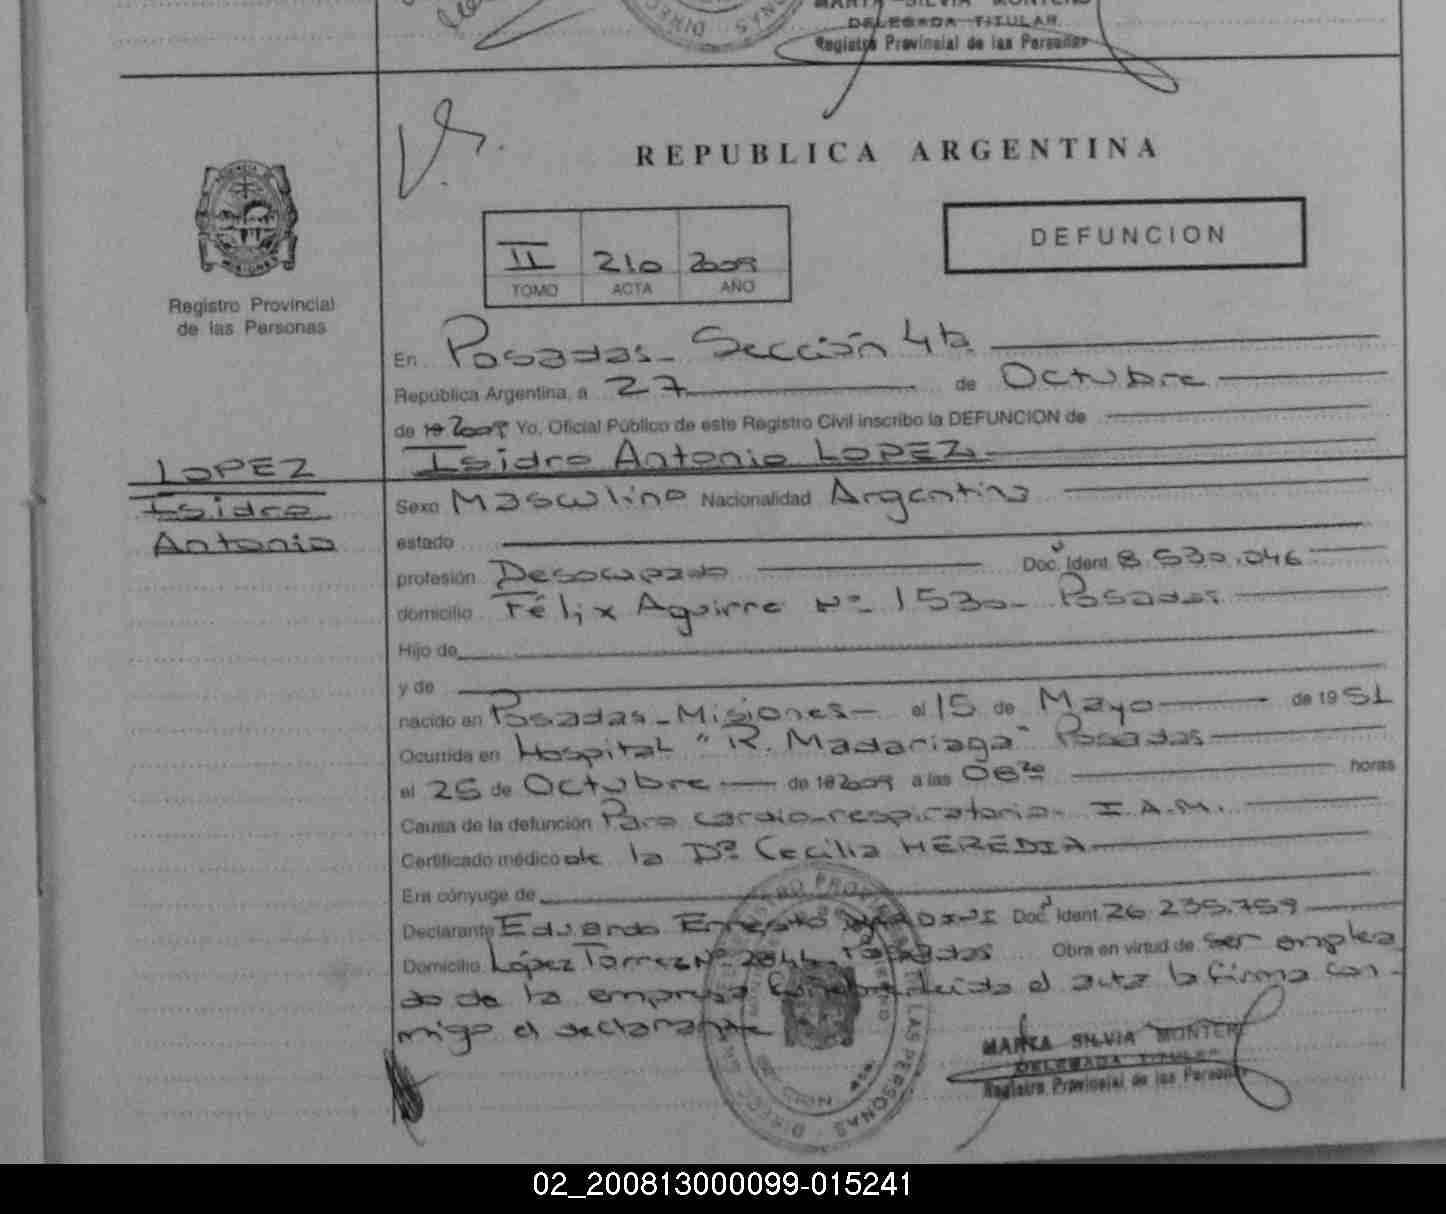 DELEGADA TITULAR
Registro Provincial de las Personas
REPUBLICA ARGENTINA
DEFUNCION
II 210 2009
TOMO ACTA AÑO
Registro Provincial
de las Personas
En Posadas - Sección 4ta
República Argentina, a 27 de Octubre
de 19 2009 Yo, Oficial Público de este Registro Civil inscribo la DEFUNCION de
Isidro Antonio LOPEZ
LOPEZ
Isidro
Antonio
Sexo Masculino Nacionalidad Argentina
estado
profesión Desocupado Doc. Ident. 8.530.046
domicilio Félix Aguirre Nº 1530 - Posadas
Hijo de
y de
nacido en Posadas - Misiones - el 15 de Mayo de 1951
Ocurrida en Hospital "R. Madariaga" Posadas
el 25 de Octubre de 19 2009 a las 06 20 horas
Causa de la defunción Paro cardio-respiratorio - I.A.M.
Certificado médico de la Dra Cecilia HEREDIA
Era cónyuge de
Declarante Eduardo Ernesto Doc. Ident. 26.235.759
Domicilio López Torres Nº 2844 - Posadas Obra en virtud de ser emplea
do de la empresa leida el acta la firma con-
migo el declarante
MARTA SILVIA MONTERO
DELEGADA TITULAR
Registro Provincial de las Personas
02_200813000099-015241